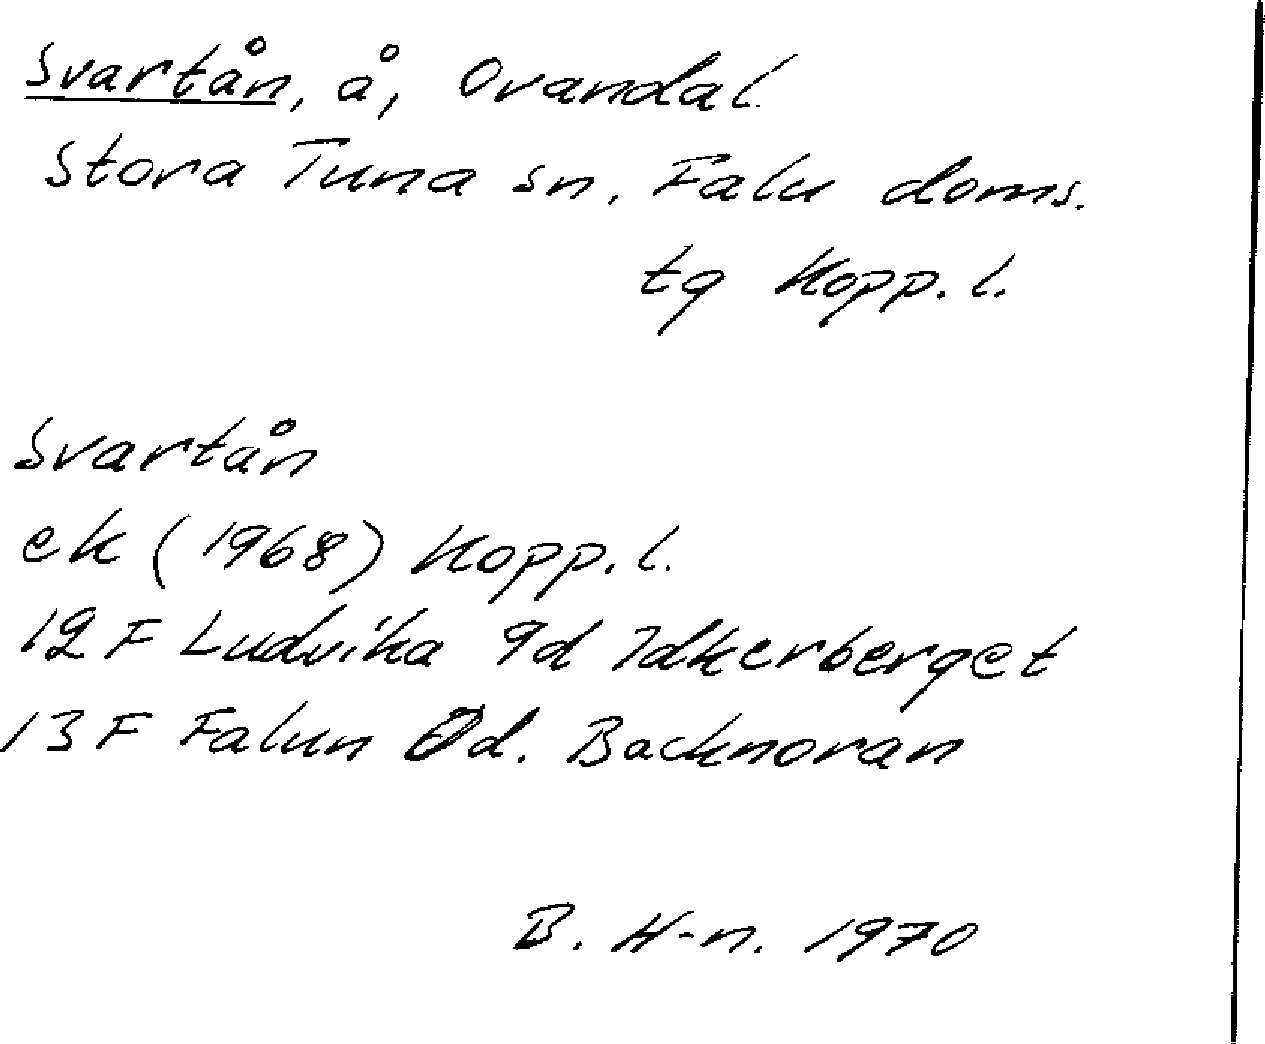 Svartån, å, Ovandal.
Stora Tuna sn, Falu doms.
tg Kopp. l.
Svartån
ek (1968) Kopp. l.
12 F Ludvika 9d Idkerberget
13 F Falun 0d. Backnoran
B. H-n. 1970